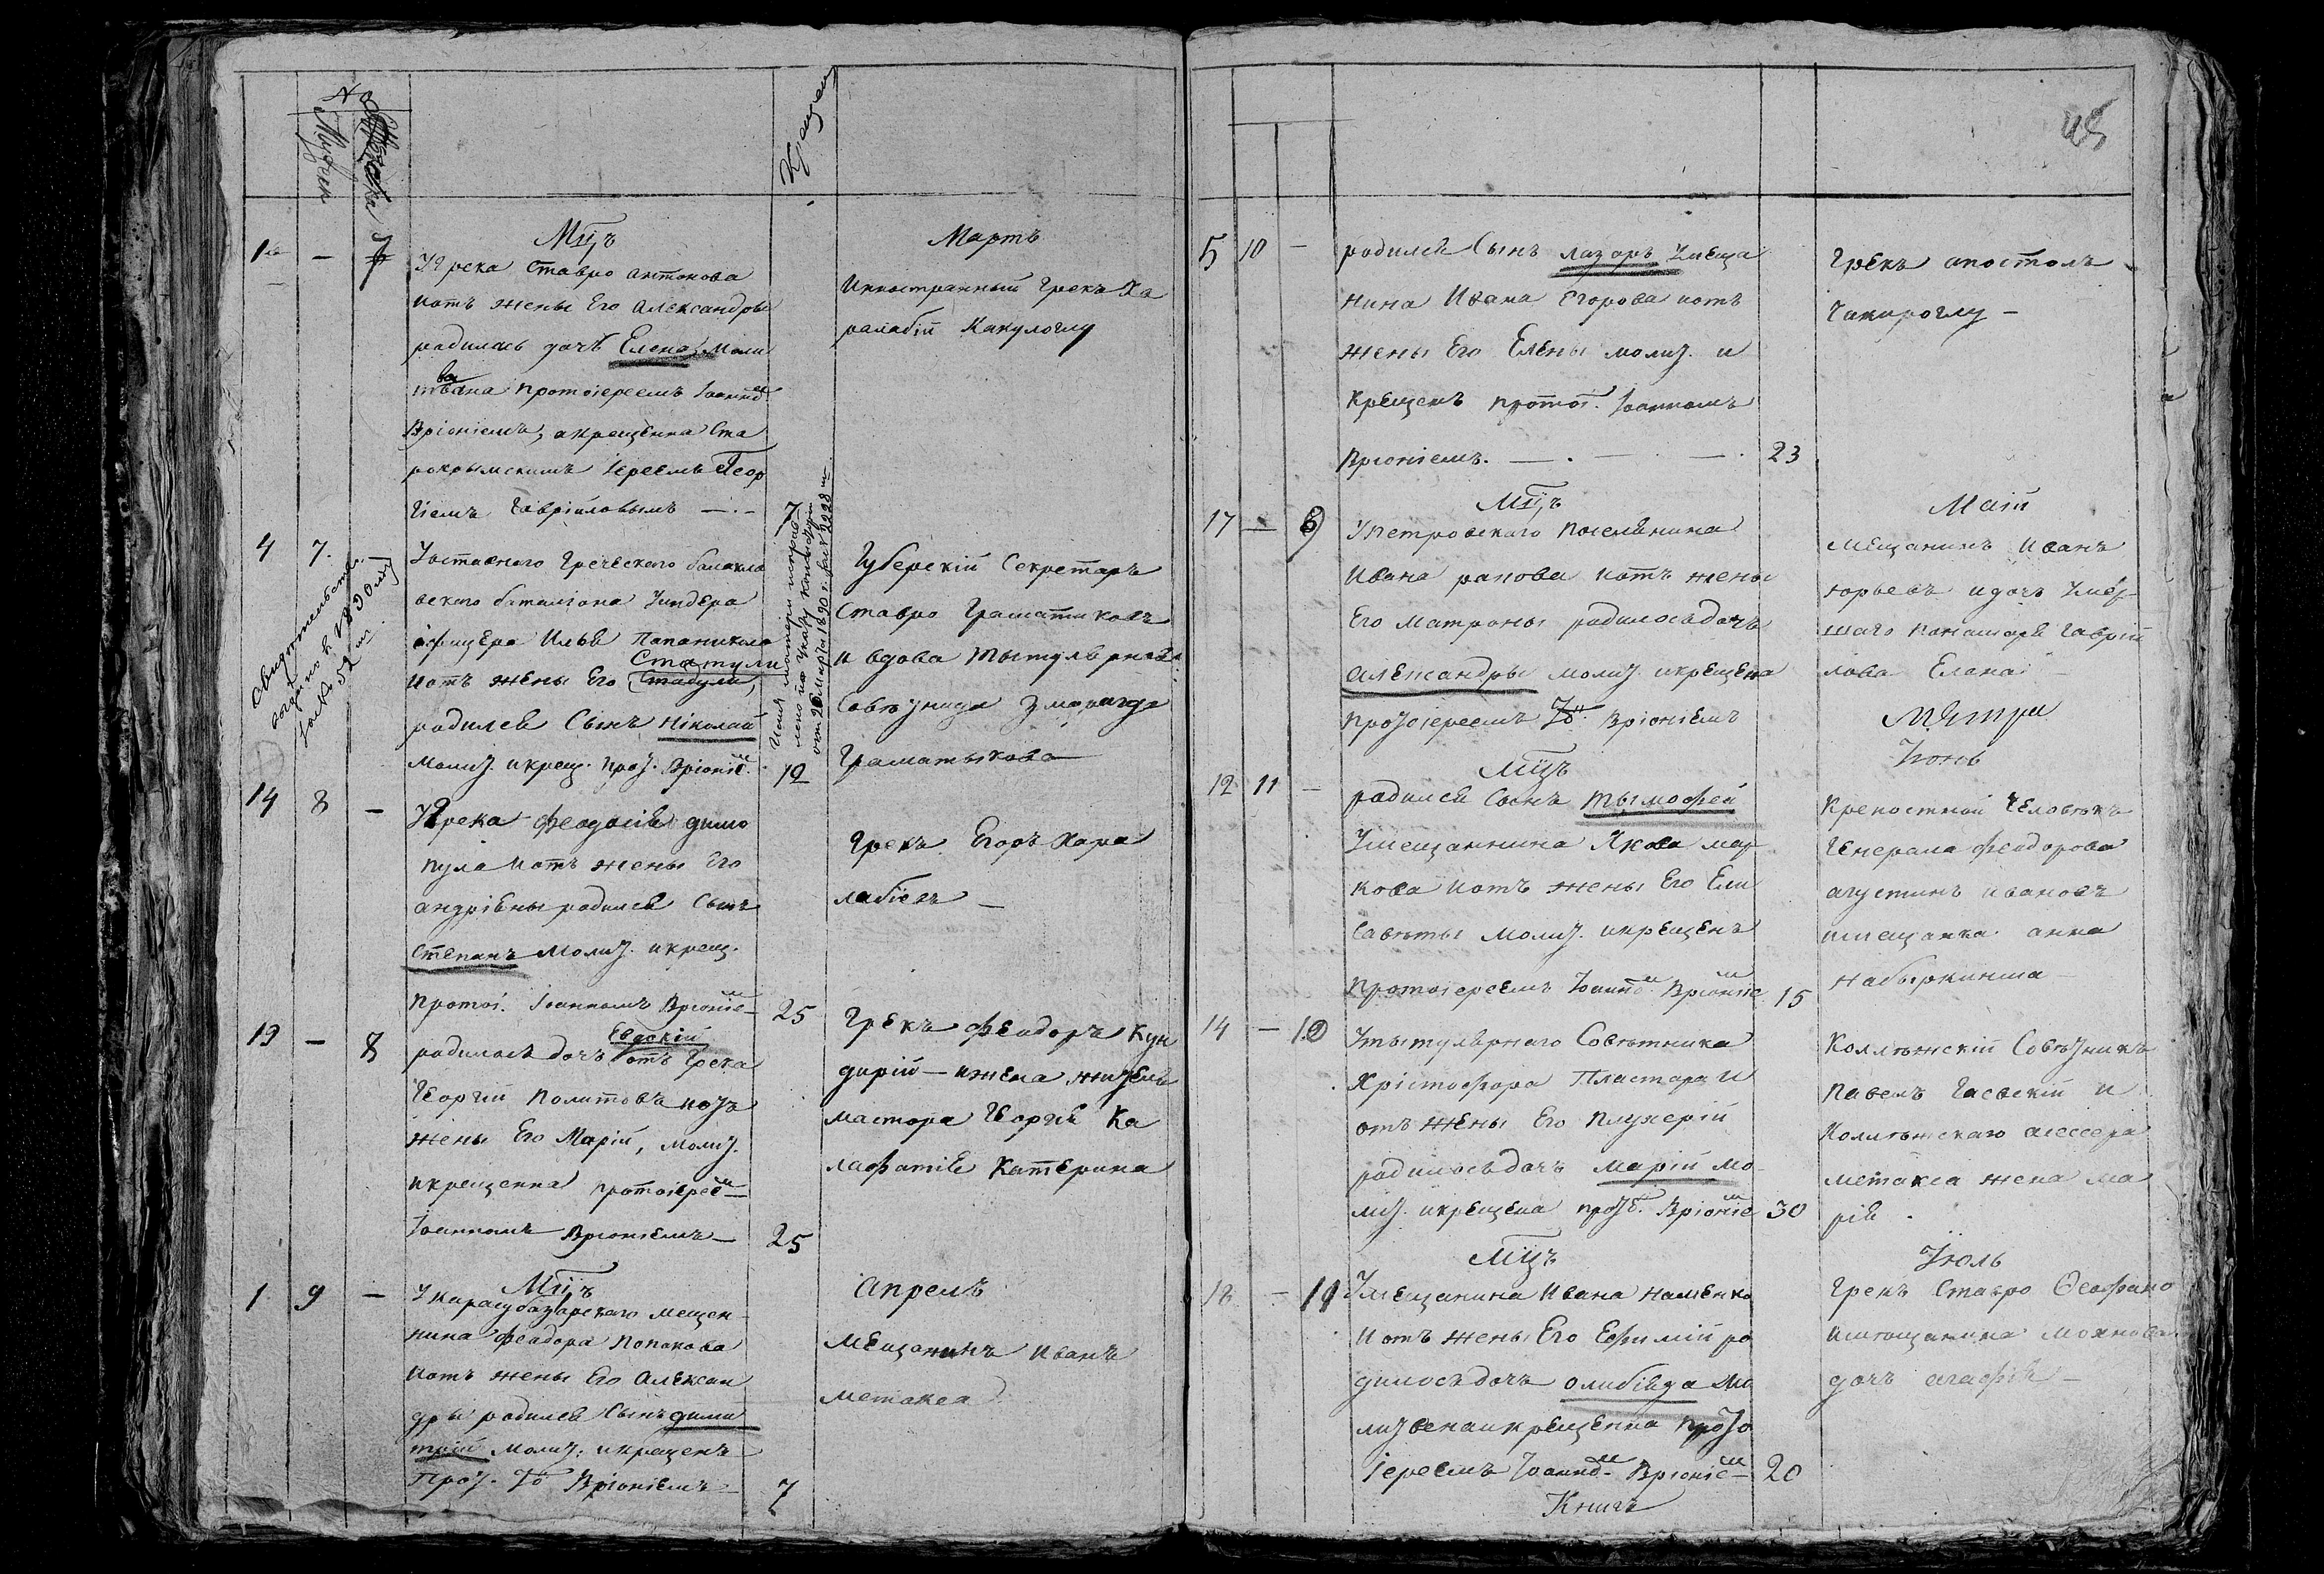 №
Мужеск
Крещен
Мцъ Мартъ
1го — 7
У Грека Ставро антонова
иотъ жены Его Александры
родилась дочъ Елена, моли
твована протоіереемъ Іоанно.м
Вріоніемъ, а крещенна Ста
рокрымскимъ Іереемъ Геор
гіемъ Гавріиловымъ — . — 7
Инностранный Грекъ Ха
ралабій Какулоглу
4 7. —
Уоставного Греческого балакла
вского баталіона Ундера
офицера Ильи Папаникола
Статули
иотъ жены Его Стадули,
родился Сынъ Николай
молит. и крещ. прот. Вріоніе.м 12
Губерскій Секретаръ
Ставро Граматиковъ
и вдова Тытулярнаго
Совѣтника Змарагда
Граматыкова
Свидетельство
52
Имя матери исправ
лено по указу консисторіи
14 8 —
У Грека Феодосія димо
пула иотъ жены Его
андріевны родился Сынъ
Степанъ молит. и крещ.
протоі. Іоанномъ Вріоніе.м 25
Грекъ Егоръ Хара
лабіевъ —
19 — 8
родилась дочъ отъ Грека
Георгий Политовъ иотъ
жены Его Марій, молит.
и крещенна протоіерее.м
Іоанномъ Вріоніемъ — 25
Грекъ Феодоръ Кун
дирій — и жена
мастора Георгія Ка
лафатіева Катерина
Мцъ Апрелъ
1 9 —
У карасубазарского мещен
нина Феодора Попакова
иотъ жены Его Алексан
дры родился Сынъ дими
трій молит. и крещенъ
Прот. Іо Вріоніемъ — 7
Мещанинъ Иванъ
метакса
45
5 10 —
родился Сынъ лазаръ Умеща
нина Ивана Егорова иотъ
жены Его Елены молит. и
крещенъ протоі. Іоанномъ
Вріоніемъ. — . — . — . 23
Грекъ апостолъ
Чакироглу —
Мцъ Маій
17 — 9
Упетровского поселянина
Ивана ранова иотъ жены
Его Матроны родиласъ дочъ
александры молит. и крещена
протоіереемъ Іо. Вріоніемъ
Мещанинъ Иванъ
юрьевъ и дочъ Умер
шаго Гаврій
лова Елена
Мцъ Іюнь
12 11 —
родился Сынъ Тымофей
Умещаннина Якова мар
кова иотъ жены Его Ели
саветы молит. и крещенъ
протоіереемъ Іоанно.м Вріоніе.м 15
Крепостной Человѣкъ
Генерала Феодорова
агустинъ ивановъ
имещанка анна
14 — 10
Утытулярного Совѣтника
Хрістофора Пластара и
отъ жены Его Плухерій
родиласъ дочъ марій мо
лит. и крещена прот. Вріоніе.м 30
Коллѣжскій Совѣтникъ
Павелъ Гаевскій и
Колѣжскаго асессера
метакса жена ма
рія .
Мцъ Іюль
18 — 11
Умещанина Ивана
иотъ жены Его Ефимій ро
диласъ дочъ олибіяда мо
литвена и крещенна прото
іереемъ Іоанно.м Вріоніе.м — 20
Грекъ Ставро Феофано
имещанина
дочъ агафія —
Книга